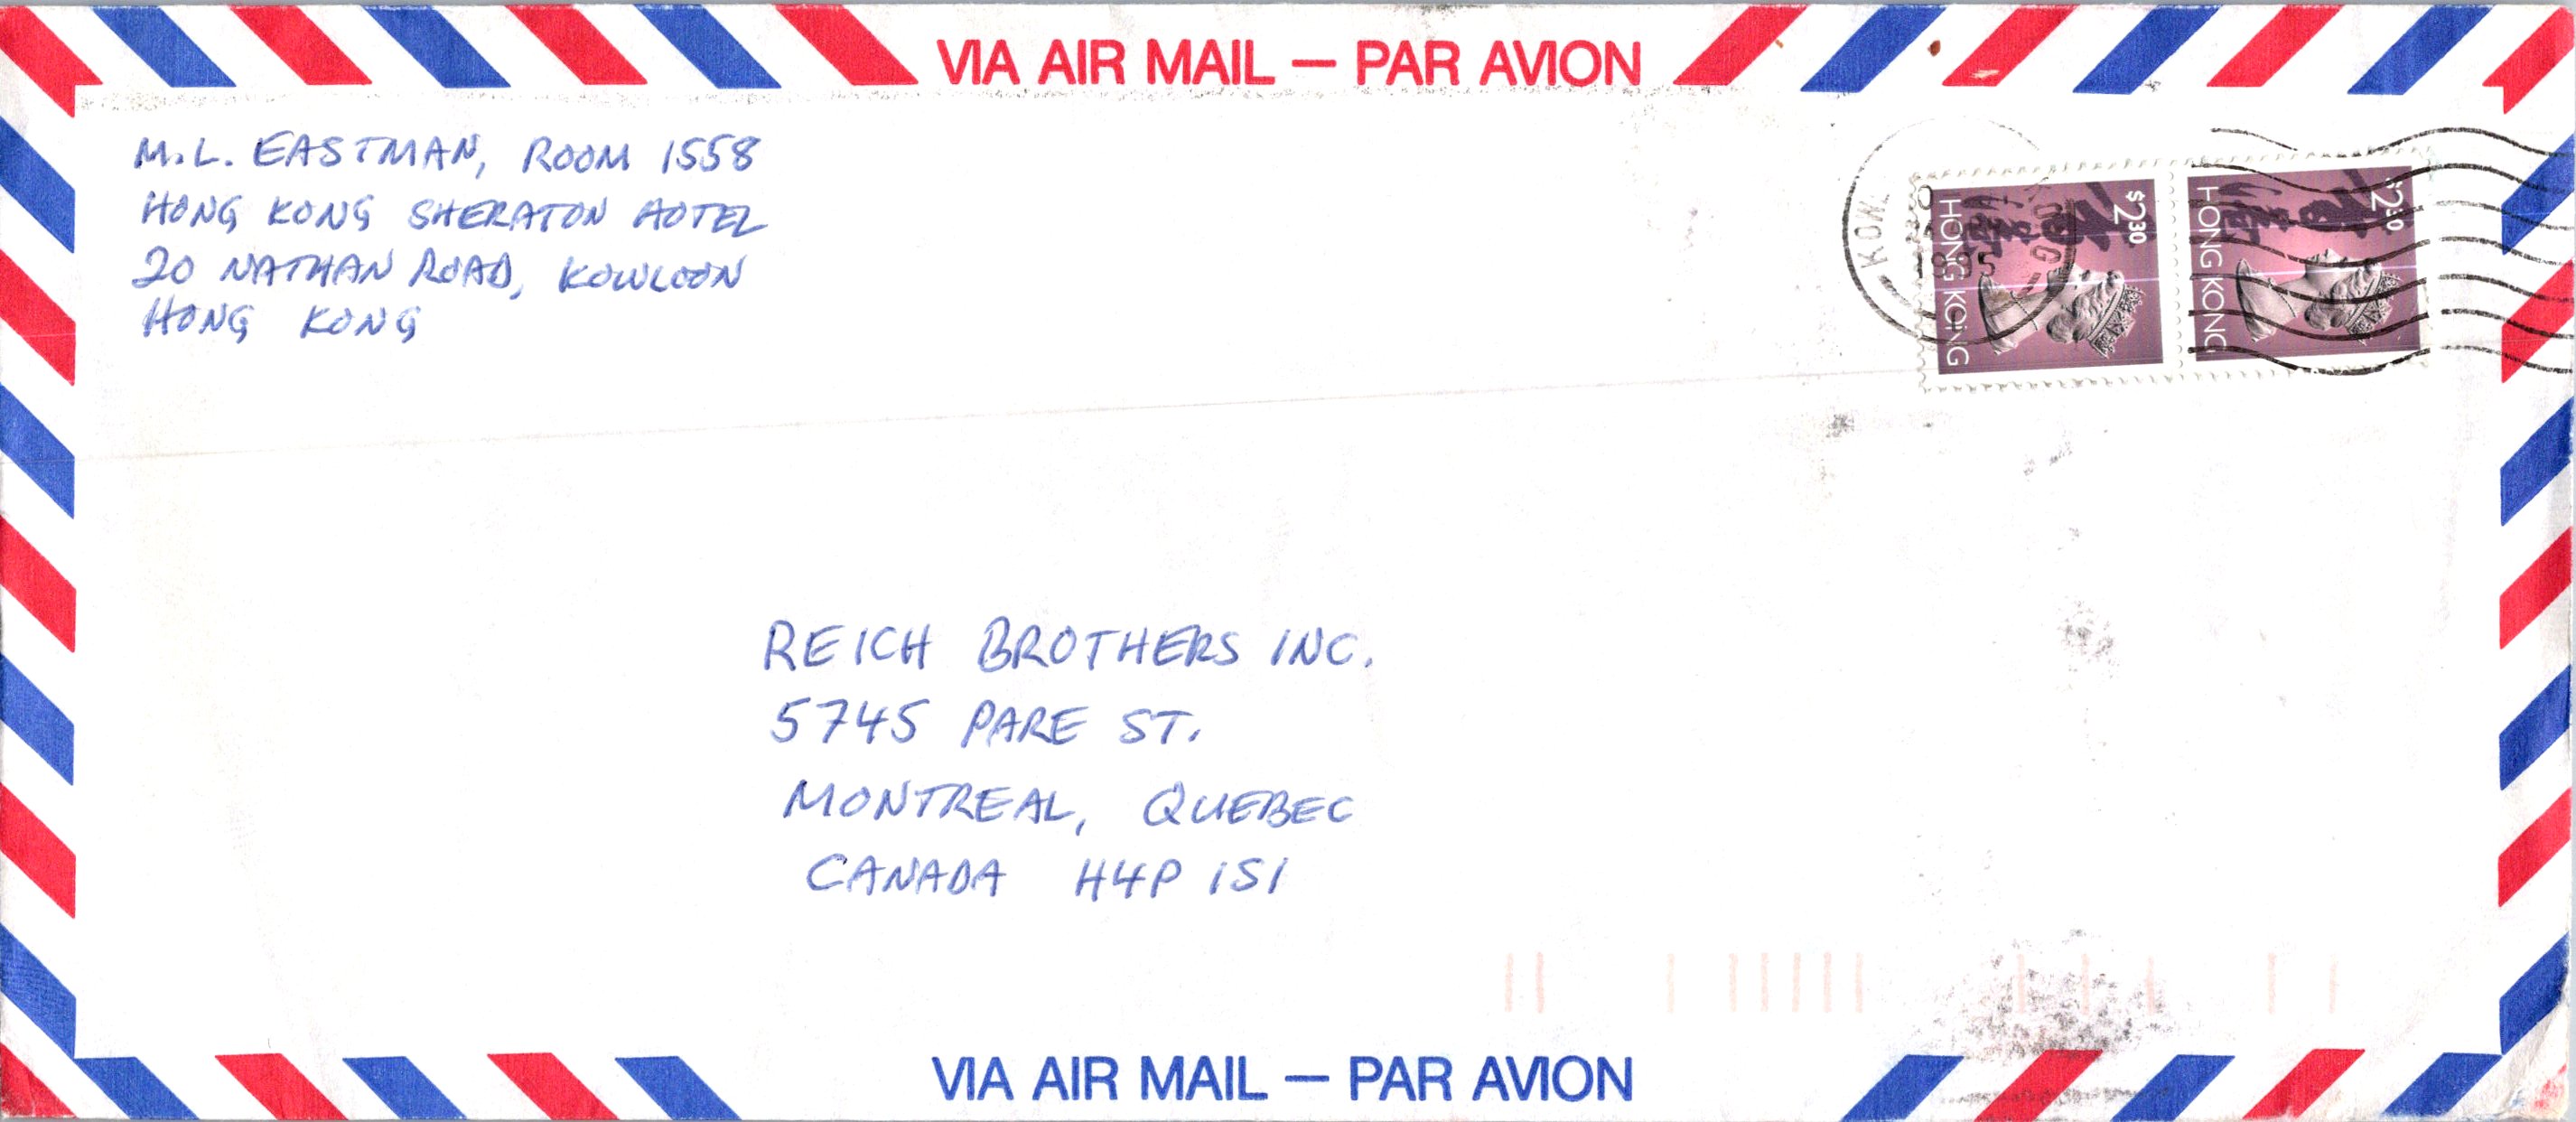 VIA AIR MAIL — PAR AVION
M.L. EASTMAN, ROOM 1558
HONG KONG SHERATON HOTEL
20 NATHAN ROAD, KOWLOON
HONG KONG
$2.30
HONG KONG
香港
$2.30
HONG KONG
香港
1995
REICH BROTHERS INC.
5745 PARE ST.
MONTREAL, QUEBEC
CANADA H4P 1S1
VIA AIR MAIL — PAR AVION